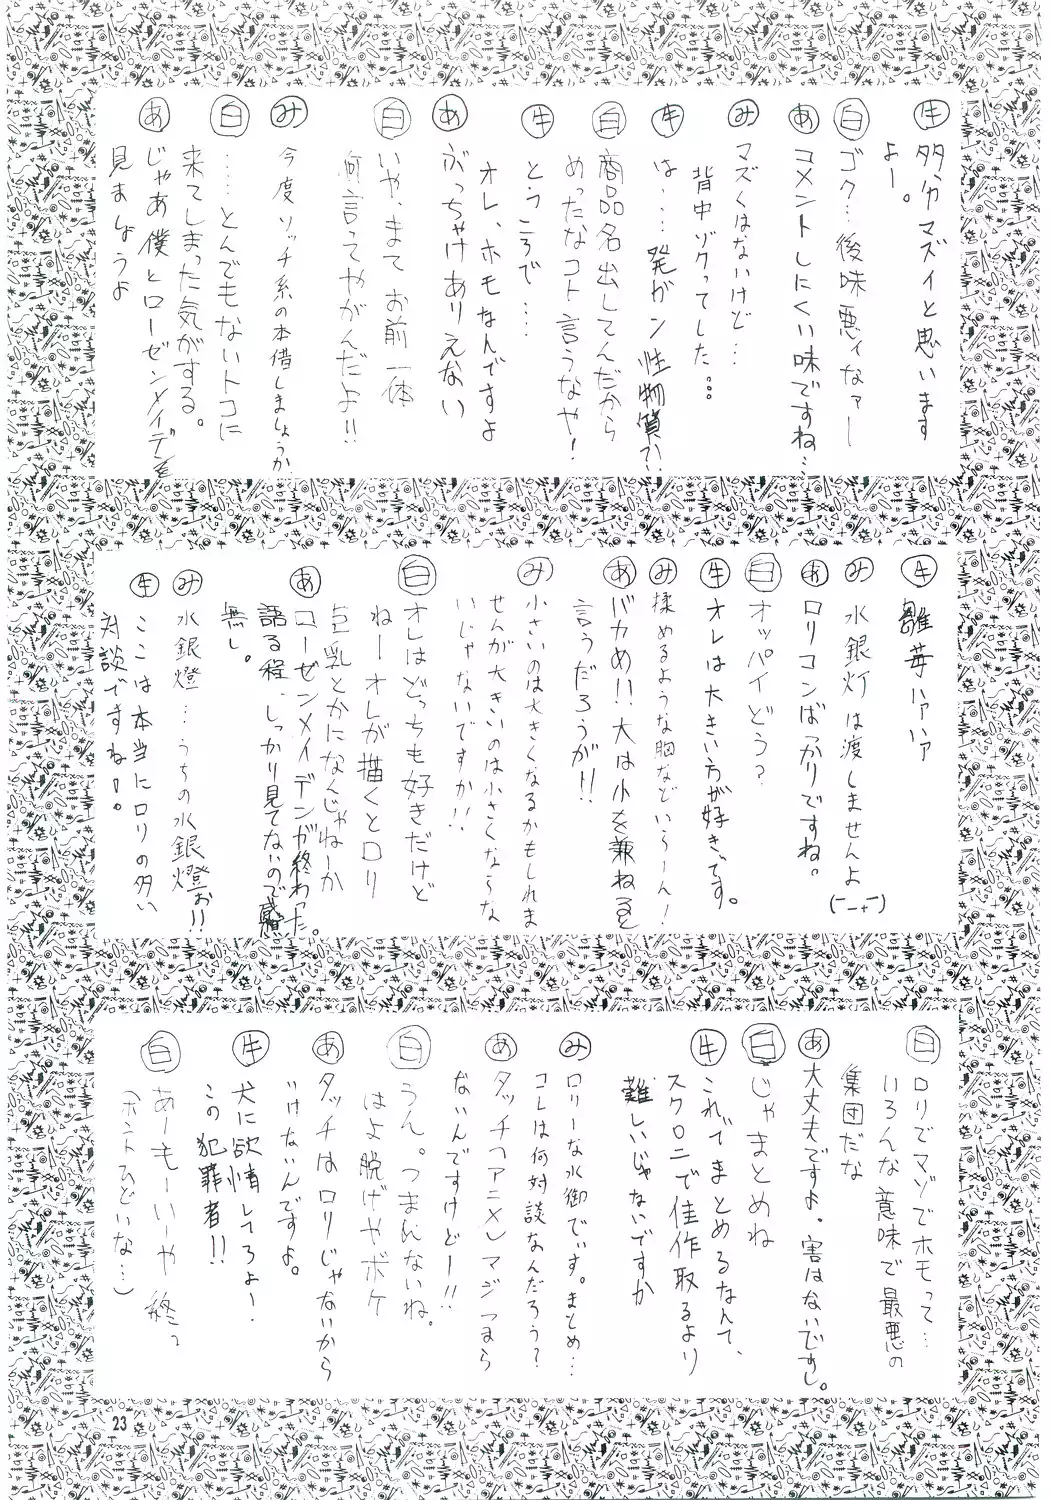 牛 多分マズイと思います
よー。
白 ゴク…後味悪ィなァー
あ コメントしにくい味ですね…
み マズくはないけど…
背中ゾクってした…
牛 は…発ガン性物質?!
白 商品名出してんだから
めったなコト言うなや!
牛 ところで….
オレ、ホモなんですよ
あ ぶっちゃけありえない
白 いや、まて お前一体
何言ってやがんだよ!!
み 今度ソッチ系の本借しましょうか
白 ….とんでもないトコに
来てしまった気がする。
あ じゃあ僕とローゼンメイデンを
見ましょうよ
牛 雛苺ハァハァ
み 水銀灯は渡しませんよ
あ ロリコンばっかりですね。
白 オッパイどう?
牛 オレは大きい方が好きです。
み 揉めるような胸などいらーん!
あ バカめ!!大は小を兼ねると
言うだろうが!!
み 小さいのは大きくなるかもしれま
せんが大きいのは小さくならな
いじゃないですか!!
白 オレはどっちも好きだけど
ねーオレが描くとロリ
巨乳とかになんじゃねーか
あ ローゼンメイデンが終わった。
語る程、しっかり見てないので感想
無し。
み 水銀燈…うちの水銀燈ぉ!!
牛 ここは本当にロリの多い
対談ですね!。
白 ロリでマゾでホモって…
いろんな意味で最悪の
集団だな
あ 大丈夫ですよ、害はないですし。
白 じゃまとめね
牛 これでまとめるなんて、
スクロニで佳作取るより
難しいじゃないですか
み ロリーな水御でぃす。まとめ…
コレは何対談なんだろう?
あ タッチ(アニメ)マジつまら
ないんですけどー!!
白 うん。つまんないね。
はよ脱げやボケ
あ タッチはロリじゃないから
いけないんですよ。
牛 犬に欲情してろよ!
この犯罪者!!
白 あーもーいーや 終っ
(ホントひどいな…)
23